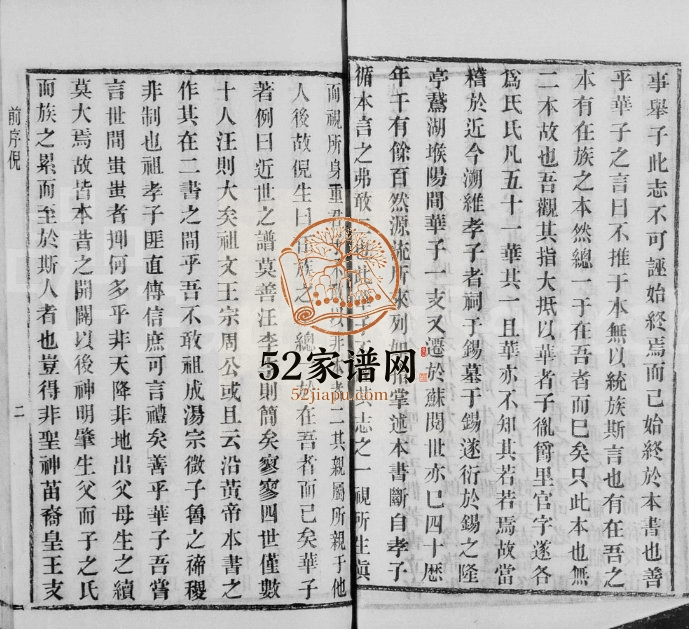 事舉子此志不可誣始終焉而已始終於本書也善
乎華子之言曰不推于本無以統族斯言也有在吾之
本有在族之本然總一于在吾者而巳矣只此本也無
二本故也吾觀其指大抵以華者子胤爵里官字遂各
爲氏氏凡五十一華其一且華亦不知其若若焉故當
稽於近今溯維孝子者祠于錫墓于錫遂衍於錫之隆
亭鵞湖堠陽間華子一支又遷於蘇閱世亦巳四十歷
年千有餘百然源流所來列如指掌述本書斷自孝子
循本言之弗敢
志之一視所生眞
而視所身重
一其親屬所親于他
人後故倪生曰
族之
總
在吾者而已矣華子
著例曰近世之譜莫善汪李
則簡矣寥寥四世僅數
十人汪則大矣祖文王宗周公或且云沿黃帝本書之
作其在二書之間乎吾不敢祖成湯宗微子魯之禘稷
非制也祖孝子匪直傳信庶可言禮矣善乎華子吾嘗
言世間蚩蚩者抑何多乎非天降非地出父母生之續
莫大焉故皆本昔之開闢以後神明肇生父而子之氏
而族之累而至於斯人者也豈得非聖神苗裔皇王支
前序倪
二
52家谱网
52jiapu.com